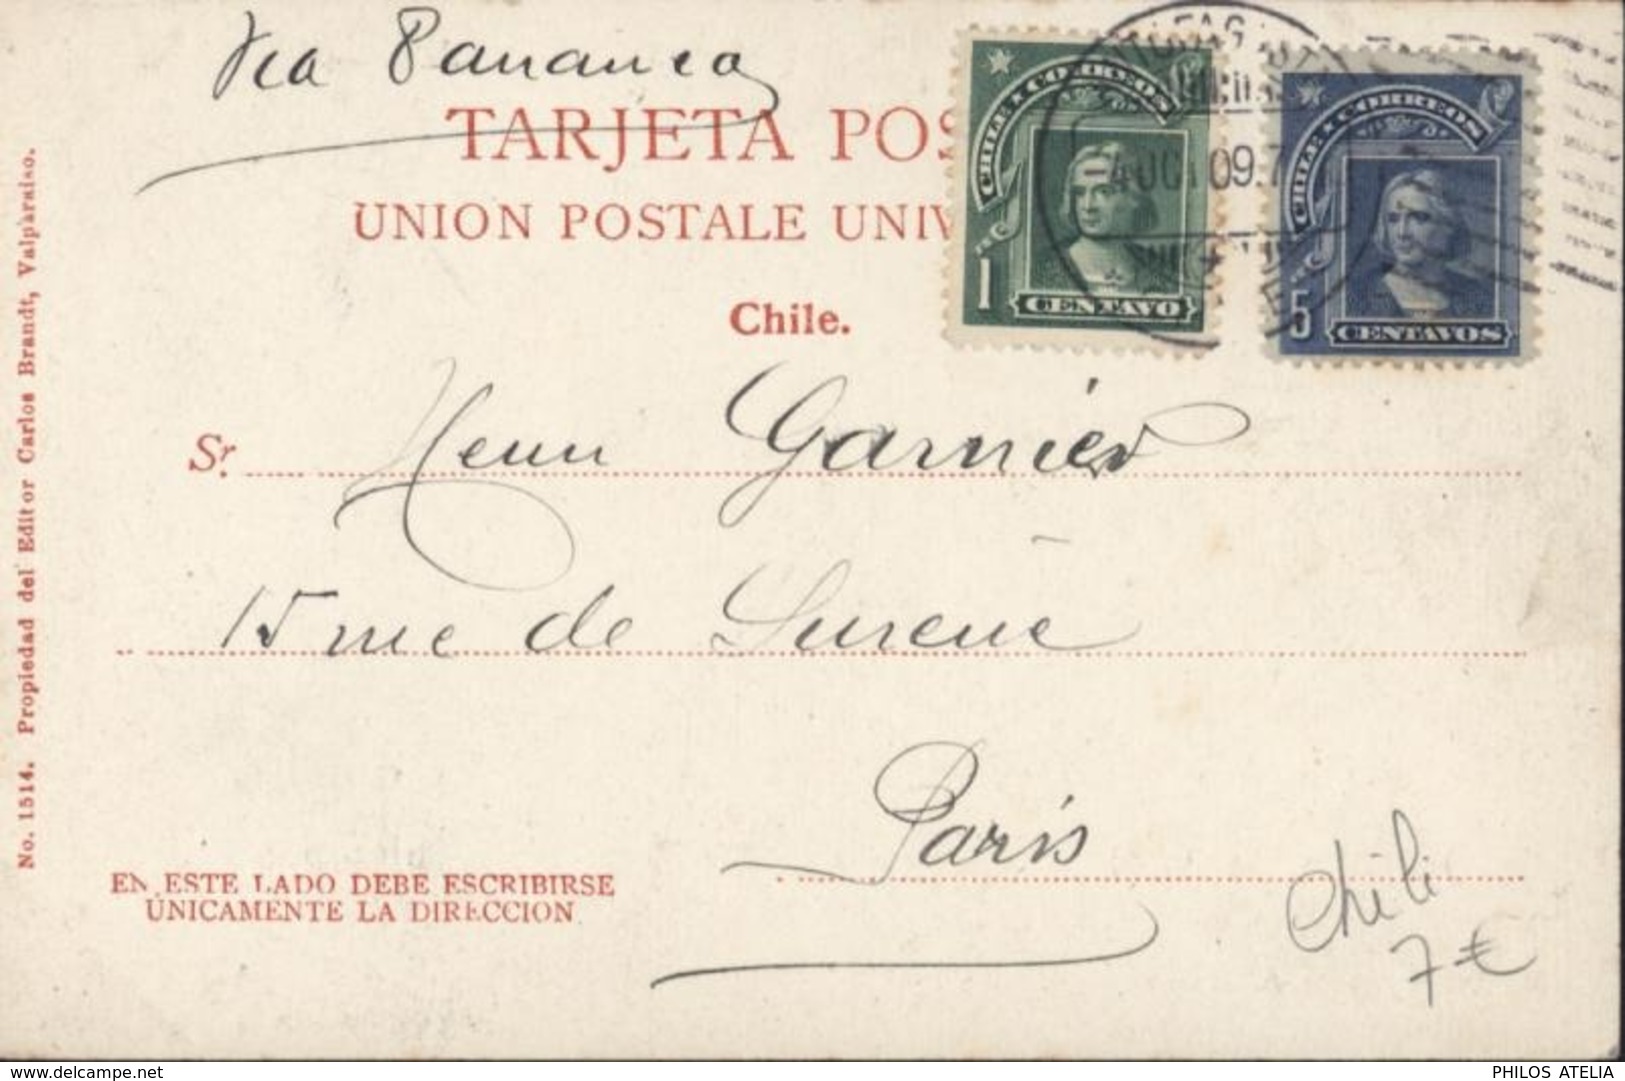 Via Panama
TARJETA POS
UNION POSTALE UNIV
Chile.
CHILE CORREOS
1
CENTAVO
CHILE CORREOS
5
CENTAVOS
09.7
Sr. Henri Garnier
15 rue de Surène
Paris
EN ESTE LADO DEBE ESCRIBIRSE
UNICAMENTE LA DIRECCION
No. 1514. Propiedad del Editor Carlos Brandt, Valparaiso.
Chili
7 €
www.delcampe.net
PHILOS ATELIA